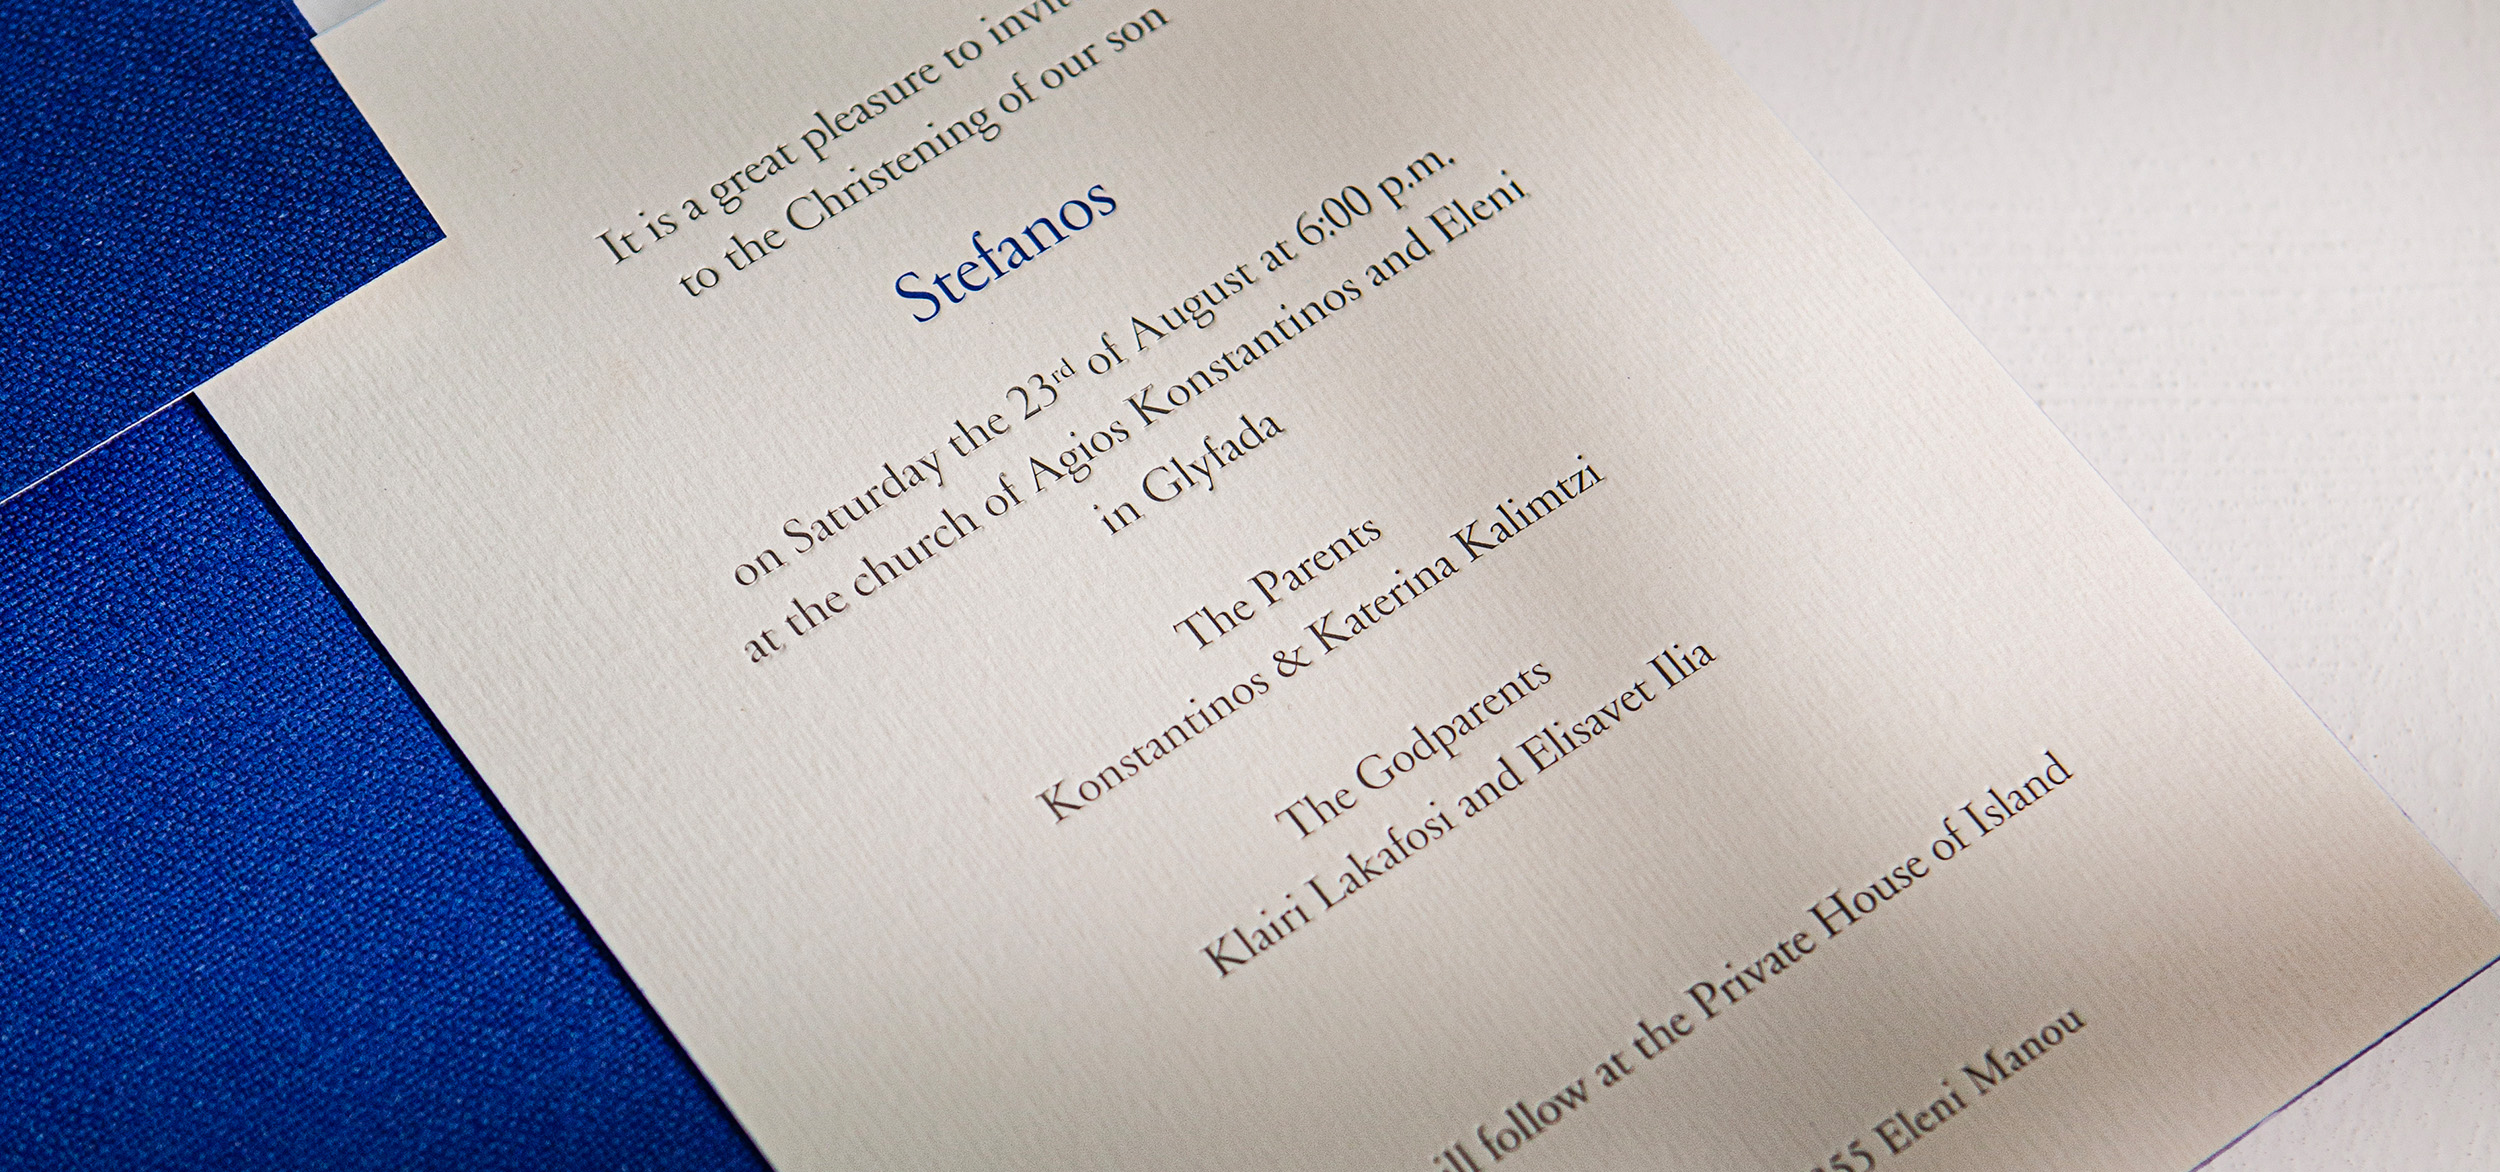 It is a great pleasure to
to the Christening of our son
Stefanos
on Saturday the 23rd of August at 6:00 p.m.
at the church of Agios Konstantinos and Eleni
in Glyfada
The Parents
Konstantinos & Katerina Kalimtzi
The Godparents
Klairi Lakafosi and Elisavet Ilia
follow at the Private House of Island
Eleni Manou